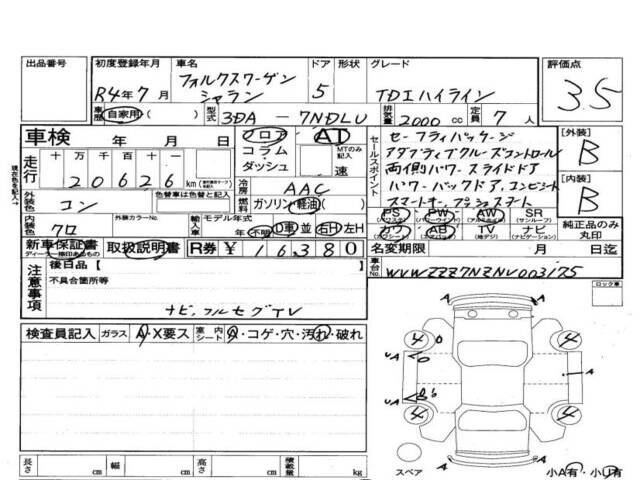 出品番号
初度登録年月 R4年7月
車名 フォルクスワーゲン シャラン
ドア 5
形状
グレード TDIハイライン
評価点 3.5
車歴 自家用( )
型式 3DA - 7NDLU
排気量 2000 cc
定員 7 人
車検 年 月 日
フロア AT
コラム・ダッシュ
MTのみ記入 速
走行 十万 万 千 百 十 一
20626 km
外装色 コン
色替車は色替と記入
外装カラーNo.
内装色 クロ
冷房 AAC
燃料 ガソリン・軽油( )
輸入車 モデル年式 年 不明 D車・並 右H・左H
セールスポイント
セーフティパッケージ
アダプティブクルーズコントロール
両側パワースライドドア
パワーバックドア、コンビシート
スマートキー、プッシュスタート
[外装] B
[内装] B
PS (パワステ) PW (パワーウインド) AW (アルミホイール) SR (サンルーフ)
カワ (カワシート) AB (エアバッグ) TV (地デジ) ナビ (ナビゲーション)
純正品のみ丸印
新車保証書 取扱説明書 R券 ¥16380
ディーラー捺印あるもの
名変期限 月 日迄
車台No. WVWZZZ7NZNV003175
注意事項
後日品 [ ]
不具合箇所等
ナビ、フルセグTV
ロック車
検査員記入 ガラス A・X要ス 室内シート A・コゲ・穴・汚れ・破れ
4 4
UA A
UA A
4 4
A A
スペア
小A有・小U有
長さ cm 幅 cm 高さ cm 積載量 kg